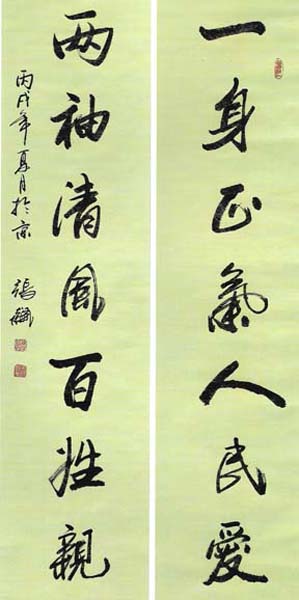 一身正氣人民愛
两袖清風百姓親
丙戌年夏月於京